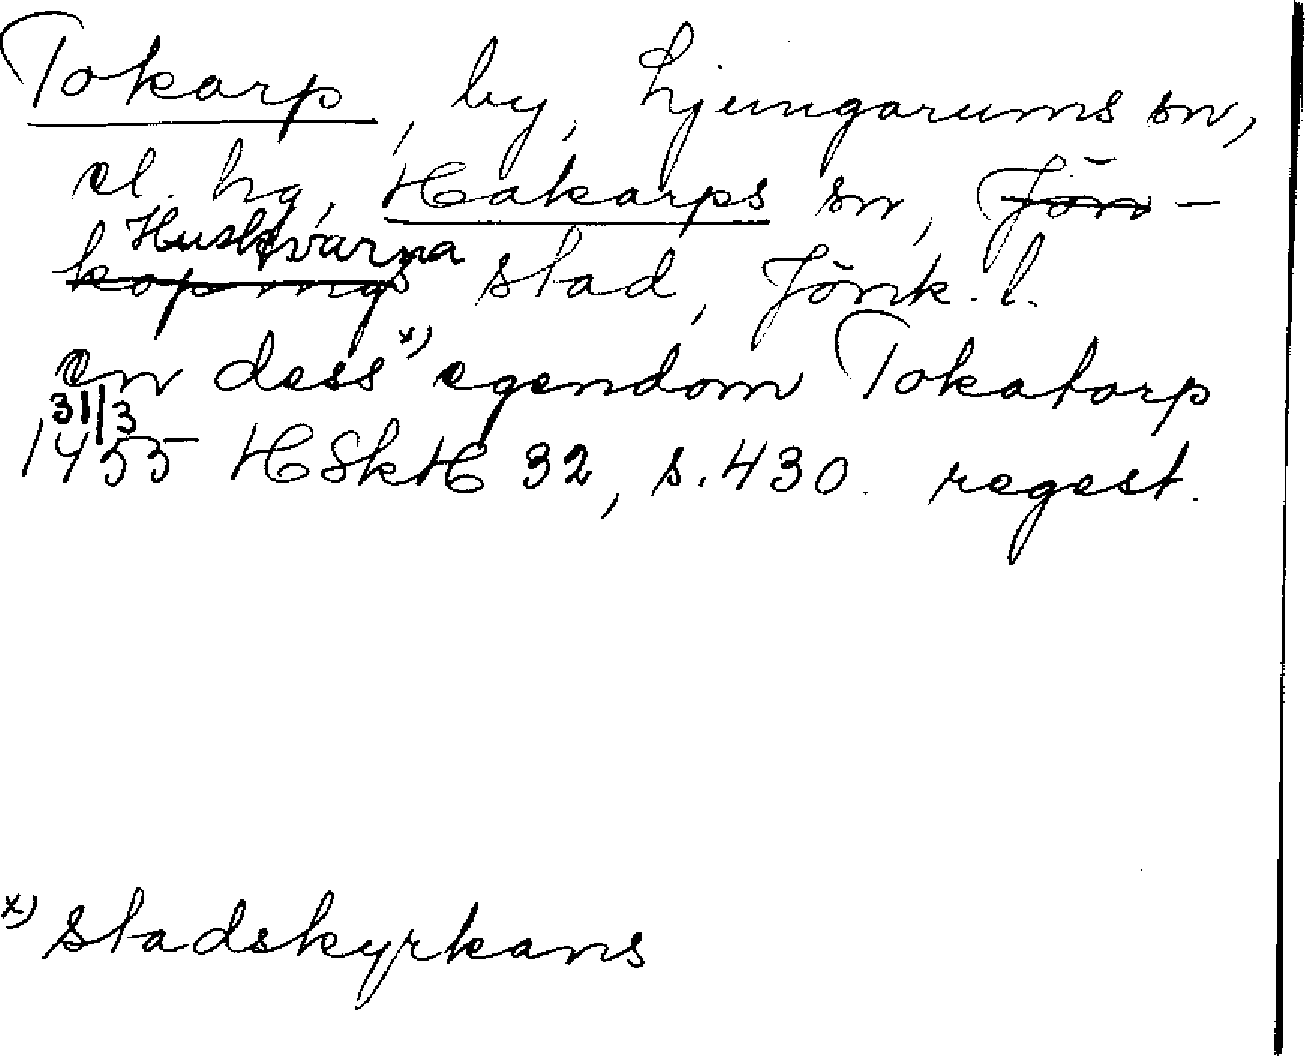 Tokarp, by, Ljungarums sn,
el. hg, Hakarps sn, Jön-
Huskvarna
köpings stad, Jönk. l.
en dess x) egendom Tokatorp
31/3
1455 HSkH 32, s. 430. regest.
x) stadskyrkans